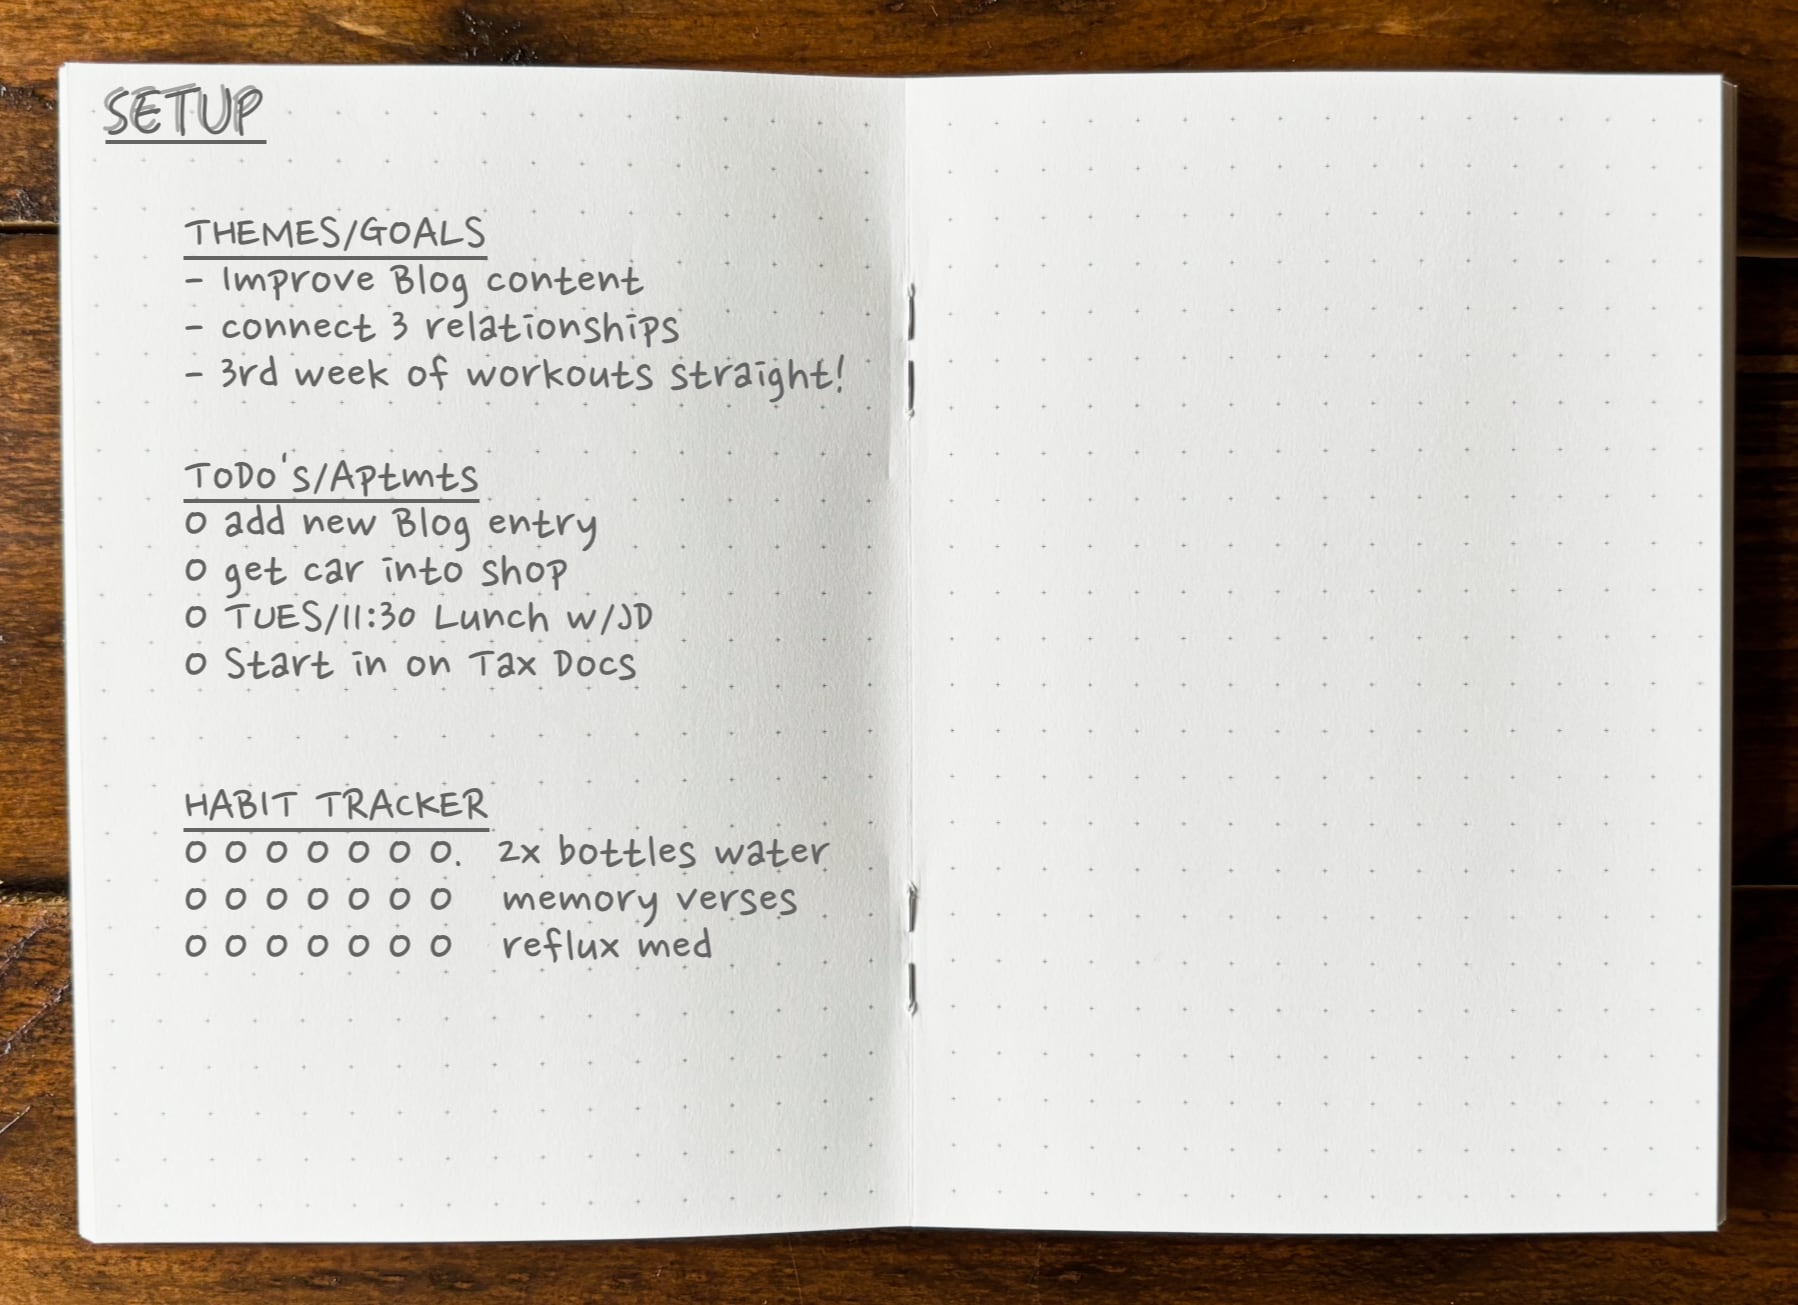 SETUP
THEMES/GOALS
- Improve Blog content
- connect 3 relationships
- 3rd week of workouts straight!
ToDo's/Aptmts
O add new Blog entry
O get car into shop
O TUES/11:30 Lunch w/JD
O Start in on Tax Docs
HABIT TRACKER
O O O O O O O. 2x bottles water
O O O O O O O memory verses
O O O O O O O reflux med